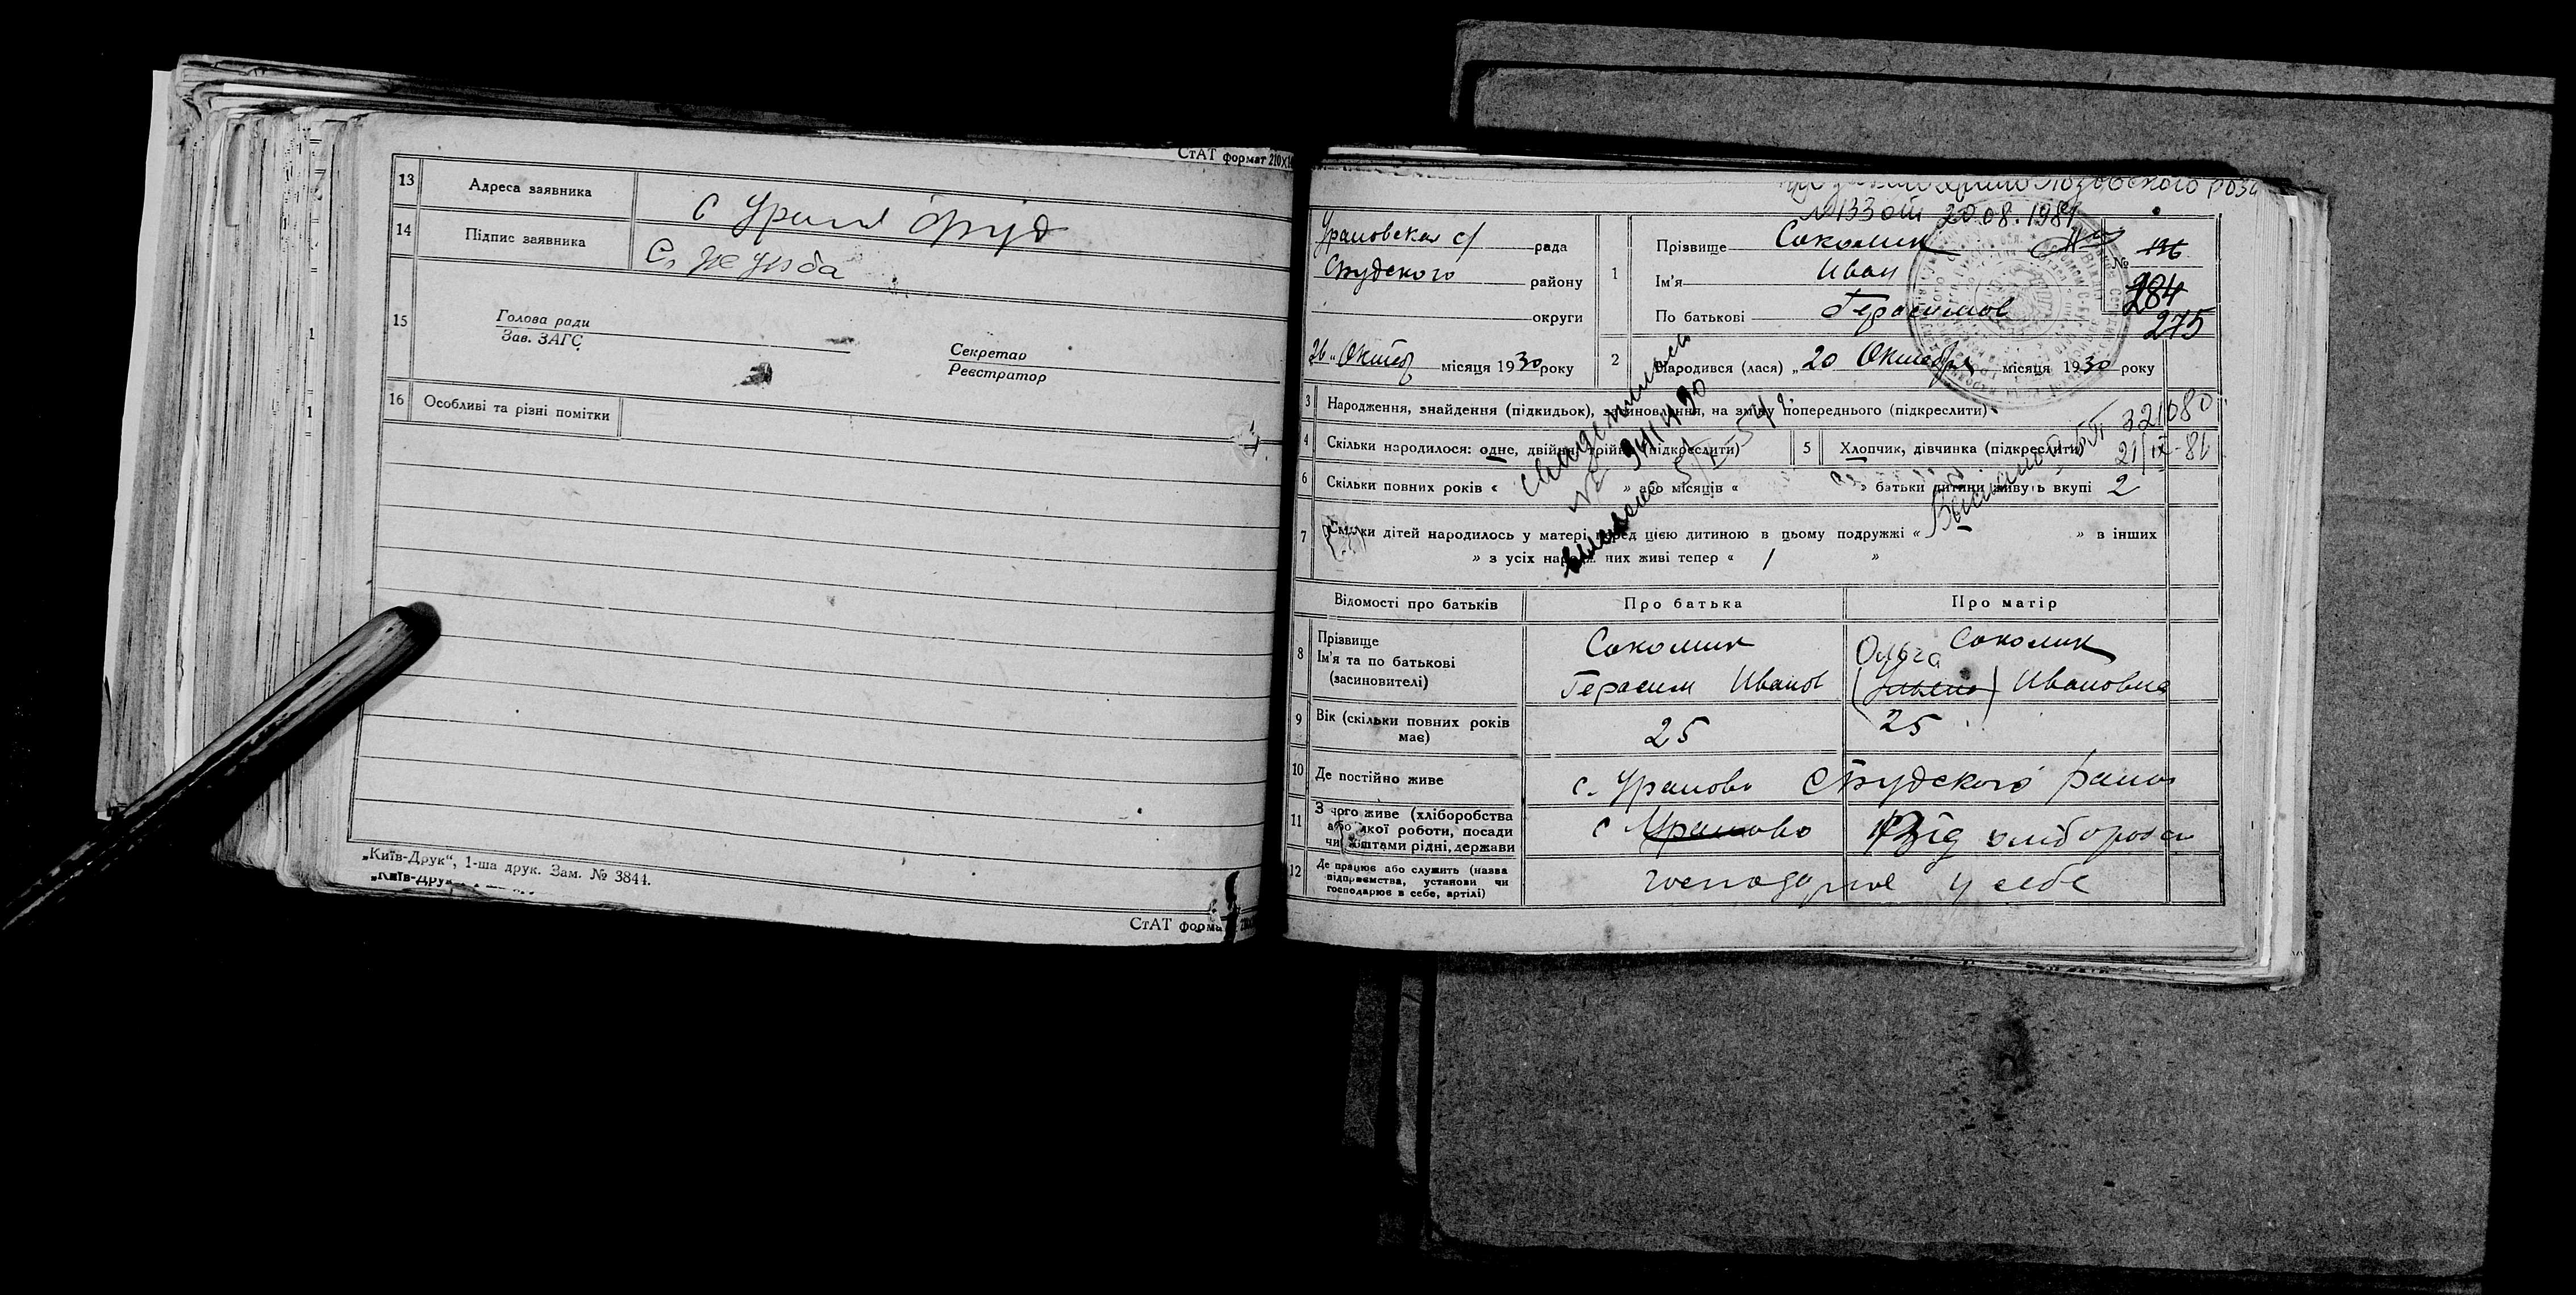 СтАТ формат 210×1
13 Адреса заявника
14 Підпис заявника
15 Голова ради
Зав. ЗАГС
Секретар
Реєстратор
16 Особливі та різні помітки
„Київ-Друк“, 1-ша друк. Зам. № 3844.
„Київ-Друк
СтАТ форма
№ 133 от 20.08.1981
Ураловская с/ рада
району
округи
26 „ Октяб місяця 1930 року
1 Прізвище Соколик
Ім'я Иван
По батькові Герасимов
№ 136
284
275
2 Народився (лася) „ 20 Октября місяця 1930 року
3 Народження, знайдення (підкидьок), засиновлення, на зміну попереднього (підкреслити)
4 Скільки народилося: одне, двійня, трійня (підкреслити)
5 Хлопчик, дівчинка (підкреслити)
321080
21/IX-81
6 Скільки повних років « » або місяців « » батьки дитини живуть вкупі 2
7 Скільки дітей народилось у матері перед цією дитиною в цьому подружжі « » в інших
» з усіх народж них живі тепер « 1 »
№ 941490
Відомості про батьків
Про батька
Про матір
8 Прізвище
Ім'я та по батькові
(засиновителі)
Соколик
Герасим Иванов
Ольга Соколик
Ивановна
9 Вік (скільки повних років має)
25
25
10 Де постійно живе
с.
11 З чого живе (хліборобства
або якої роботи, посади
чи коштами рідні, держави
с
Від хлібороба
12 Де працює або служить (назва
підприємства, установи чи
господарює в себе, артілі)
господарює у себе